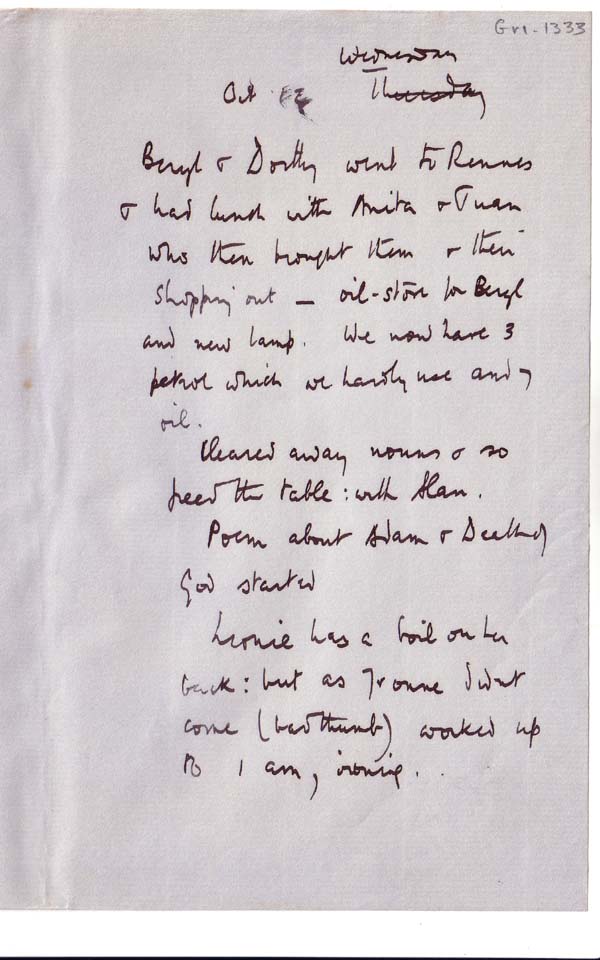 Gri-1333
Wednesday
Oct Thursday
Beryl & Dorothy went to Rennes
& had lunch with Anita & Juan
who then brought them & their
shopping out — oil-stove for Beryl
and new lamp. We now have 3
petrol which we hardly use and 7
oil.
Cleared away nouns & so
freed the table: with Alan.
Poem about Adam & Death of
God started
Leonie has a boil on her
back: but as Yvonne didnt
come (bad thumb) worked up
to 1 am, ironing..